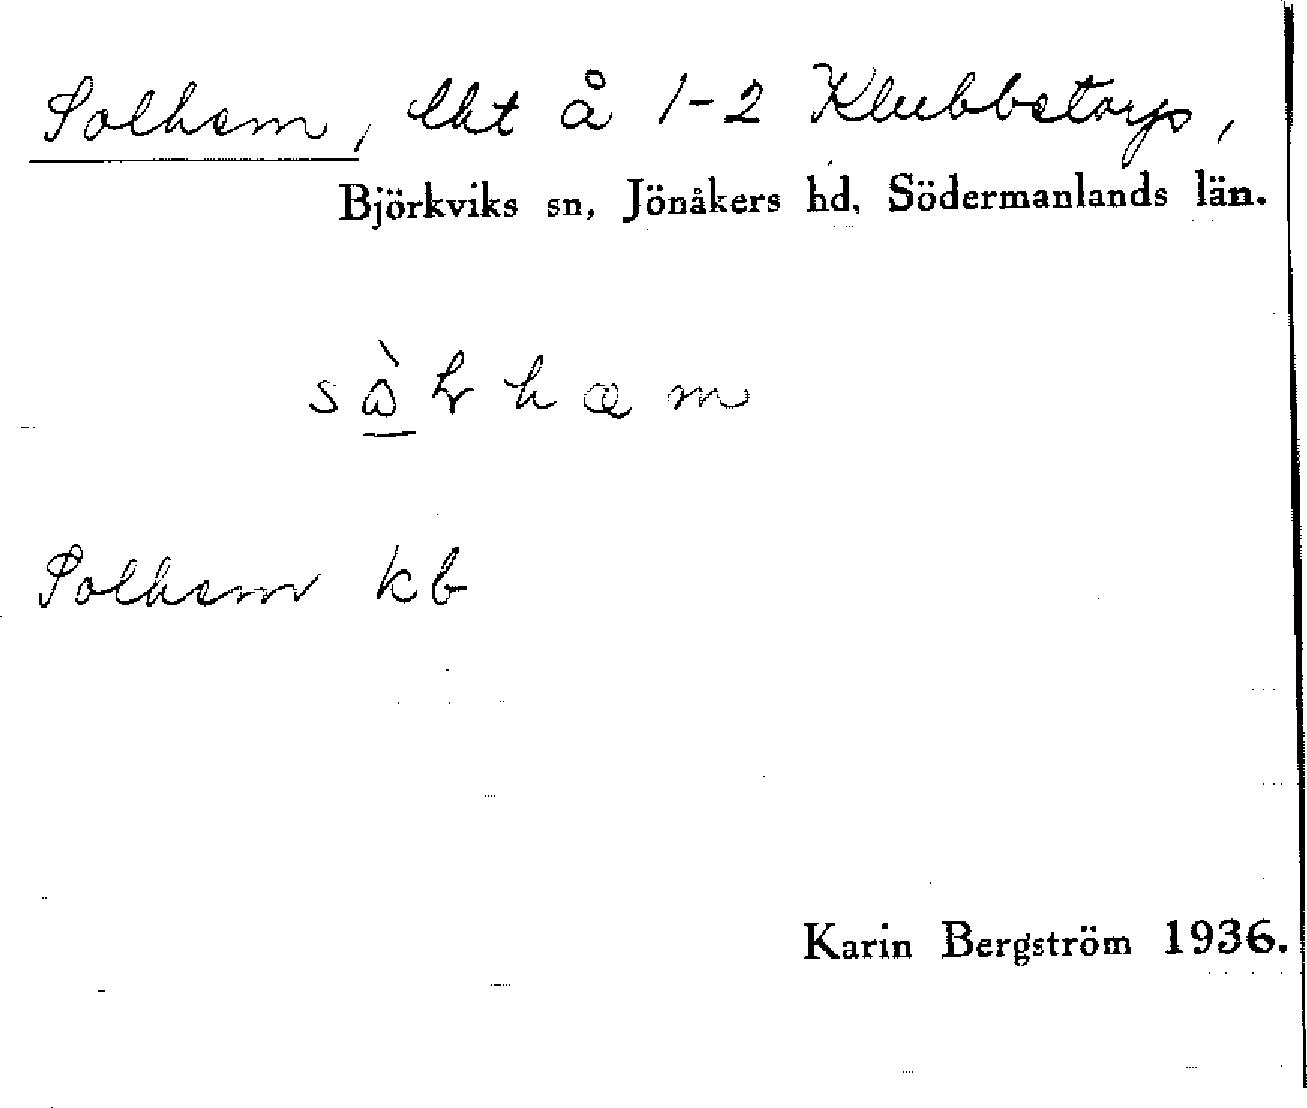 Solhem, lht å 1-2 Klubbetorp,
Björkviks sn, Jönåkers hd, Södermanlands län.
Solhem kb
Karin Bergström 1936.